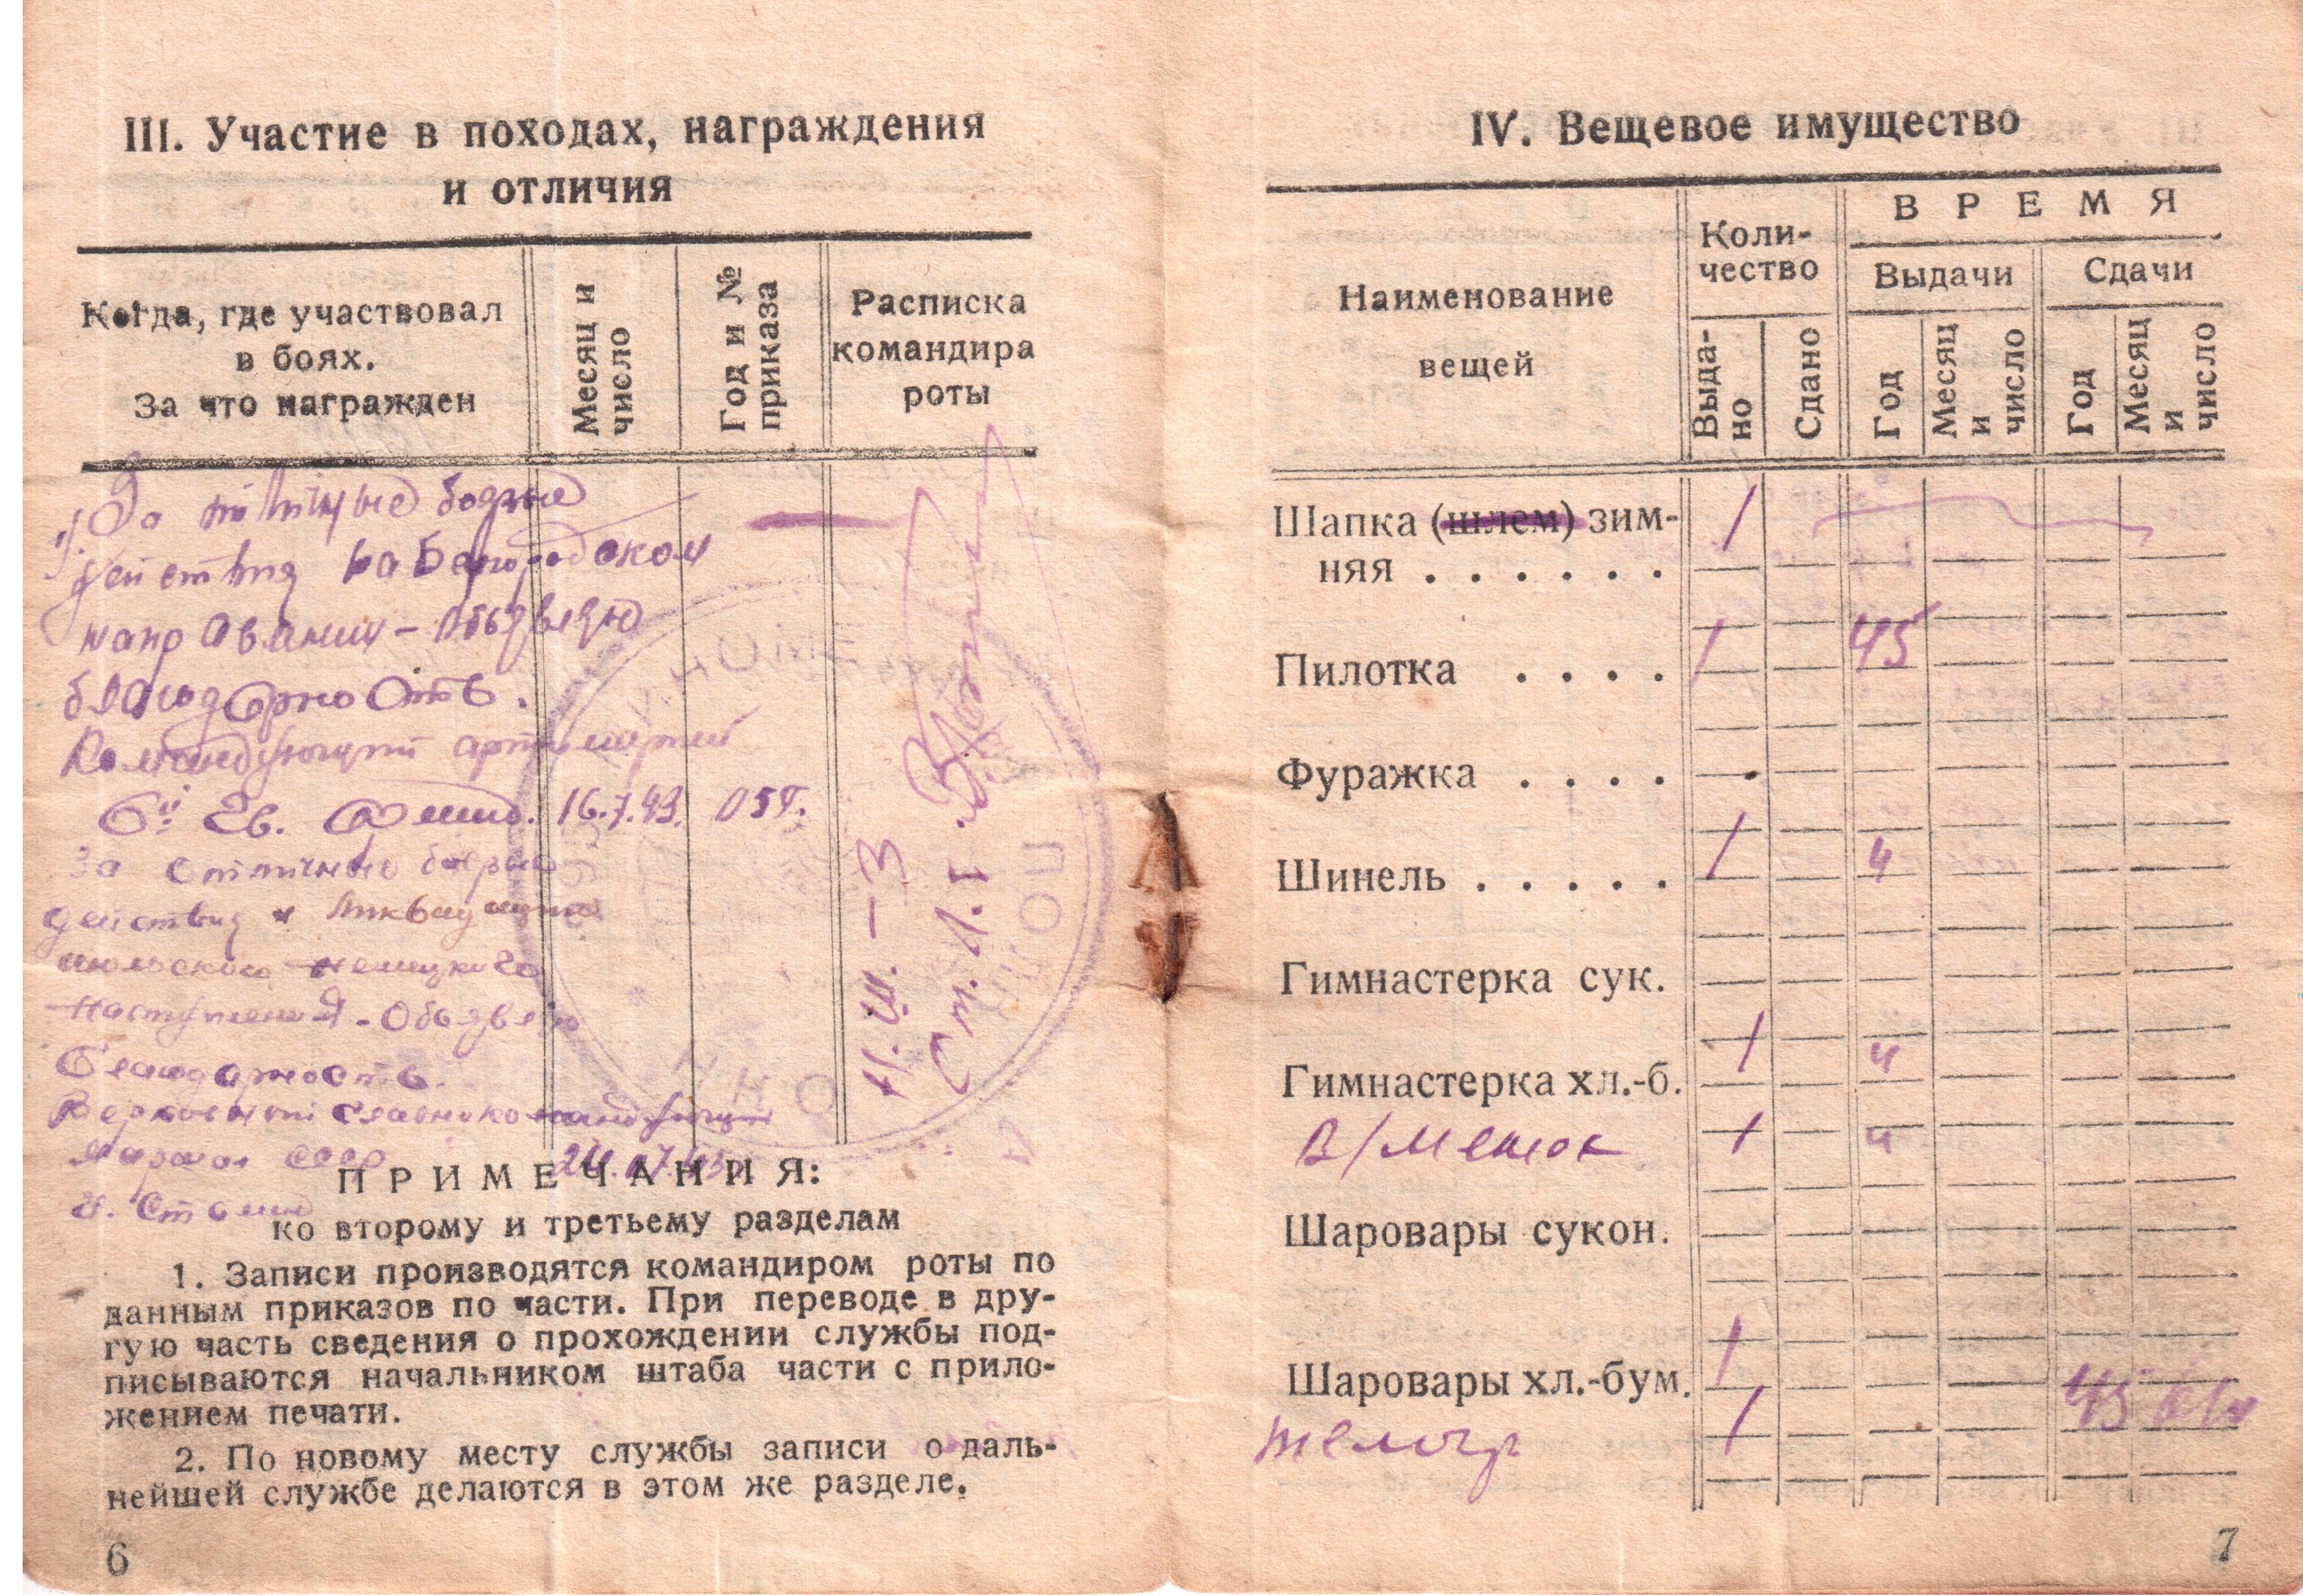 III. Участие в походах, награждения
и отличия
Когда, где участвовал
в боях.
За что награжден
Месяц и
число
Год и №
приказа
Расписка
командира
роты
1) За отличные боевые
действия на Белгородском
направлении - объявлено
благодарность.
Командующий артиллерией
6й Гв. Армии. 16.7.43. 057.
За отличные боевые
действия и ликвидацию
июльского немецкого
наступления - Объявлено
благодарность.
Верховный главнокомандующий
Маршал СССР 24.07.43
И. Сталин
Н.Ш. - 3
Ст. Л-т.
ПРИМЕЧАНИЯ:
ко второму и третьему разделам
1. Записи производятся командиром роты по
данным приказов по части. При переводе в дру-
гую часть сведения о прохождении службы под-
писываются начальником штаба части с прило-
жением печати.
2. По новому месту службы записи о даль-
нейшей службе делаются в этом же разделе.
6
IV. Вещевое имущество
Наименование
вещей
Коли-
чество
ВРЕМЯ
Выдачи
Сдачи
Выда-
но
Сдано
Год
Месяц
и
число
Год
Месяц
и
число
Шапка (шлем) зим- 1
няя . . . . . .
Пилотка . . . . 1 45
Фуражка . . . .
Шинель . . . . . 1 ч
Гимнастерка сук.
Гимнастерка хл.-б. 1 ч
В/мешок 1 ч
Шаровары сукон.
Шаровары хл.-бум. 1
телогр 1 45
7